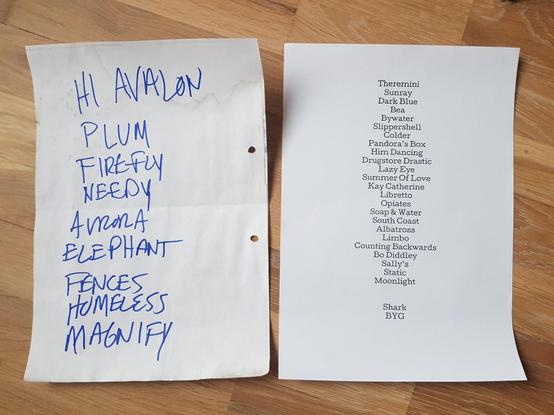 HI AVALON
PLUM
FIREFLY
NEEDY
AURORA
ELEPHANT
FENCES
HOMELESS
MAGNIFY
Theremini
Sunray
Dark Blue
Bea
Bywater
Slippershell
Colder
Pandora's Box
Him Dancing
Drugstore Drastic
Lazy Eye
Summer Of Love
Kay Catherine
Libretto
Opiates
Soap & Water
South Coast
Albatross
Limbo
Counting Backwards
Bo Diddley
Sally's
Static
Moonlight
Shark
BYG